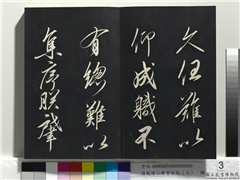 久任難以
仰成職不
有總難以
集序朕肇
3